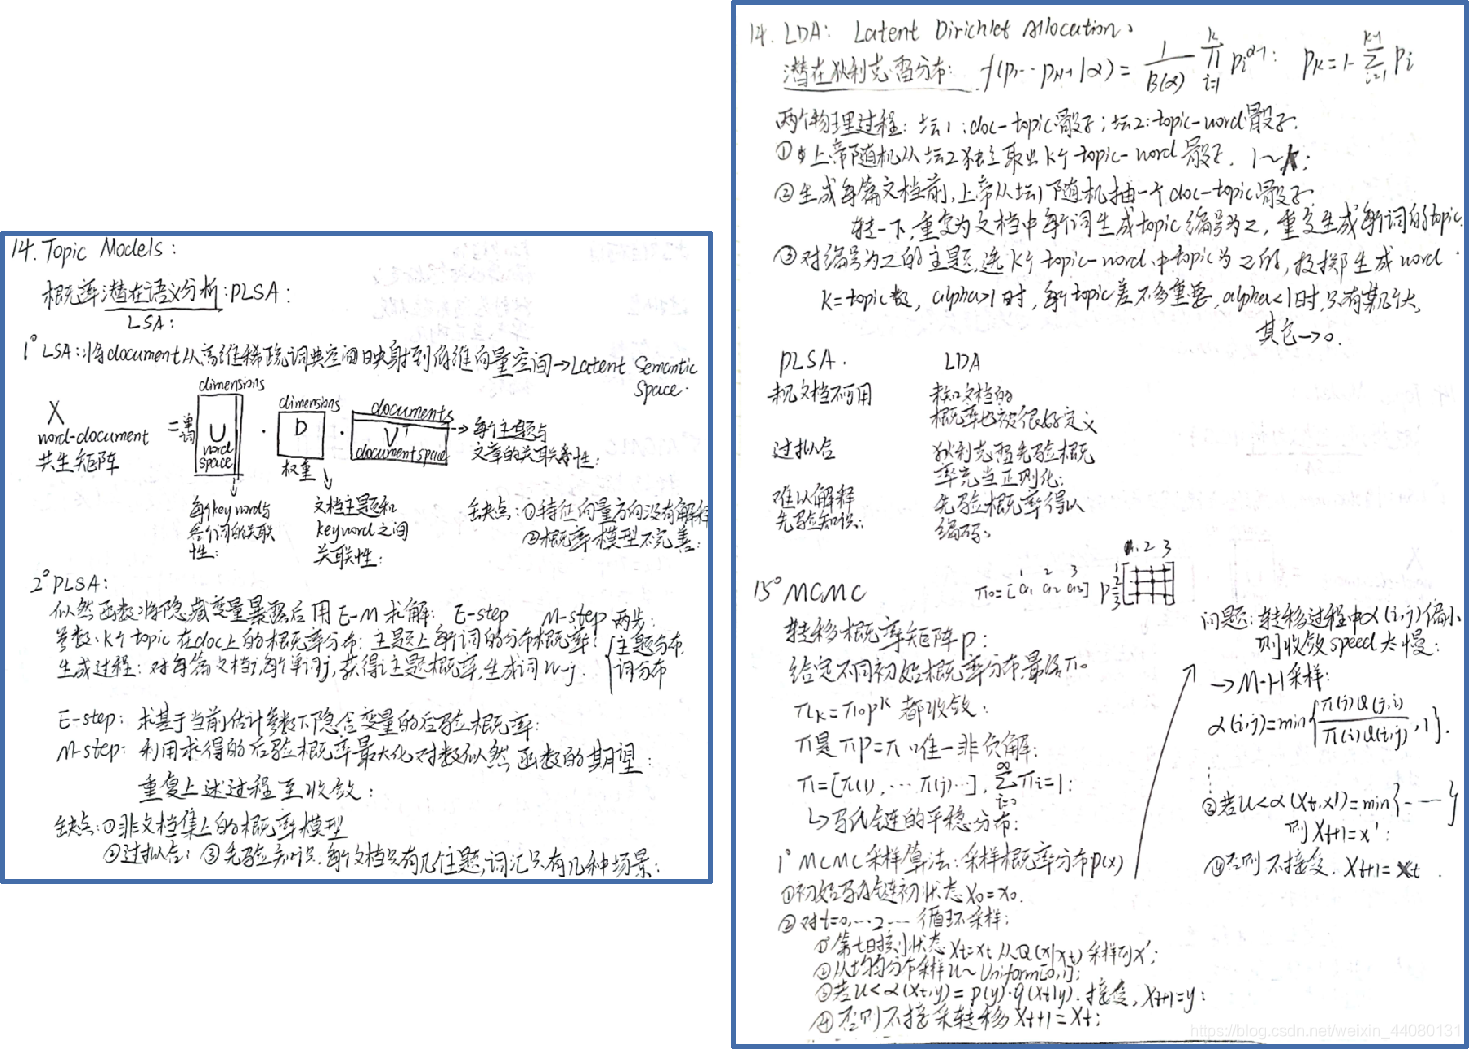 14. Topic Models:
概率潜在语义分析:PLSA:
LSA:
1° LSA:将document从高维稀疏词典空间映射到低维向量空间→Latent Semantic
Space.
X
word-document
共生矩阵
=
单词
dimensions
U
word
space
·
dimensions
D
权重
·
documents
Vᵀ
document space
→每个主题与
文章的关联关系性:
每个keyword与
各个词的关联
性:
文档主题和
keyword之间
关联性:
缺点:①特征向量方向没有解释
②概率模型不完善:
2° PLSA:
似然函数:将隐藏变量暴露后用E-M求解: E-step M-step 两步:
参数:K个topic在doc上的概率分布:主题上每个词的分布概率! {主题分布
生成过程:对每篇文档i,每个单词j,获得主题概率,生成词w-j. 词分布
E-step:求基于当前估计参数下隐含变量的后验概率:
M-step:利用求得的后验概率最大化对数似然函数的期望:
重复上述过程至收敛:
缺点:①非文档集上的概率模型
②过拟合: ③先验知识.每个文档只有几个主题,词汇只有几种场景:
14. LDA: Latent Dirichlet Allocation.
潜在狄利克雷分布: f(p₁…p_{k-1}|α) = 1/B(α) ∏_{i=1}^{k} p_i^{αi-1}: p_k=1-∑_{i=1}^{k-1} p_i
两个物理过程:坛1:doc-topic骰子;坛2:topic-word骰子.
①上帝随机从坛2独立取出K个topic-word骰子, 1~K;
②生成每篇文档前,上帝从坛1下随机抽一个doc-topic骰子.
转一下,重复为文档中每个词生成topic编号为z,重复生成每个词的topic.
③对编号为z的主题,选K个topic-word中topic为z的,投掷生成word.
K=topic数, alpha>1时,每个topic差不多重要,alpha<1时,只有某个大,
其它→0.
PLSA. LDA
未知文档不可用 未知文档的
概率也被很好定义
过拟合 狄利克雷先验概
率充当正则化:
难以解释 先验概率得以
先验知识: 编码:
15° MCMC π₀=[a₁ a₂ a₃] P
1 2 3
1 2 3
1 2 3
转移概率矩阵P:
给定不同初始概率分布,最终π₀
π_k=π₀P^k 都收敛:
π是πP=π 唯一非负解:
π=[π(1),…π(j)…], ∑_{i=0}^{∞}π_i=1:
↳马氏链的平稳分布:
1° MCMC采样算法:采样概率分布p(x)
①初始马氏链初状态X₀=x₀.
②对t=0,…2… 循环采样:
①第t时刻状态X_t=x_t从Q(x|x_t)采样到x';
②从均匀分布采样u~Uniform[0,1];
③若u<α(x_t,y)=p(y)·q(x_t|y).接受,X_{t+1}=y:
④否则不接受转移X_{t+1}=X_t;
问题:转移过程中α(i,j)偏小
则收敛speed太慢:
→M-H采样:
α(i,j)=min{π(j)Q(j,i)/π(i)Q(i,j),1}.
⋮
③若u<α(x_t,x')=min{- —}
则X_{t+1}=x':
④否则不接受. X_{t+1}=x_t.
https://blog.csdn.net/weixin_44080131